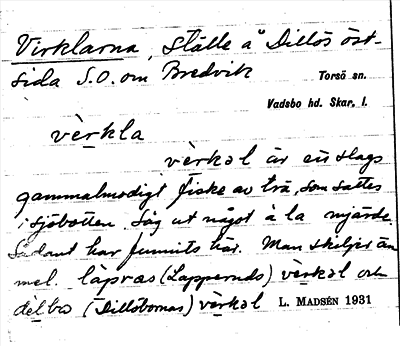 Virklarna, ställe å Dillös öst-
sida S.O. om Bredvik
Torsö sn.
Vadsbo hd. Skar. l.
vèrkla
vèrkəl är ett slags
gammalmodigt fiske av trä, som sattes
i sjöbotten. Såg ut något à la mjärde.
Sådant har funnits här. Man skiljer än
mel. lápras (Lapperuds) vèrkəl och
dèlbo (Dillöbornas) vèrkəl
L. MADSÉN 1931